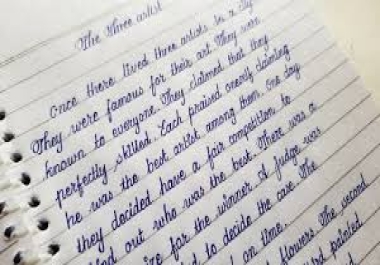 The three artist
Once there lived three artists in a city
They were famous for their art. They were
known to everyone. They claimed that they
perfectly skilled. Each praised oneself claiming
he was the best artist among them. One day
they decided have a fair competition to
find out who was the best. There was a
for the winner. A judge was
to decide the case. The
on time.
flowers. The second
painted